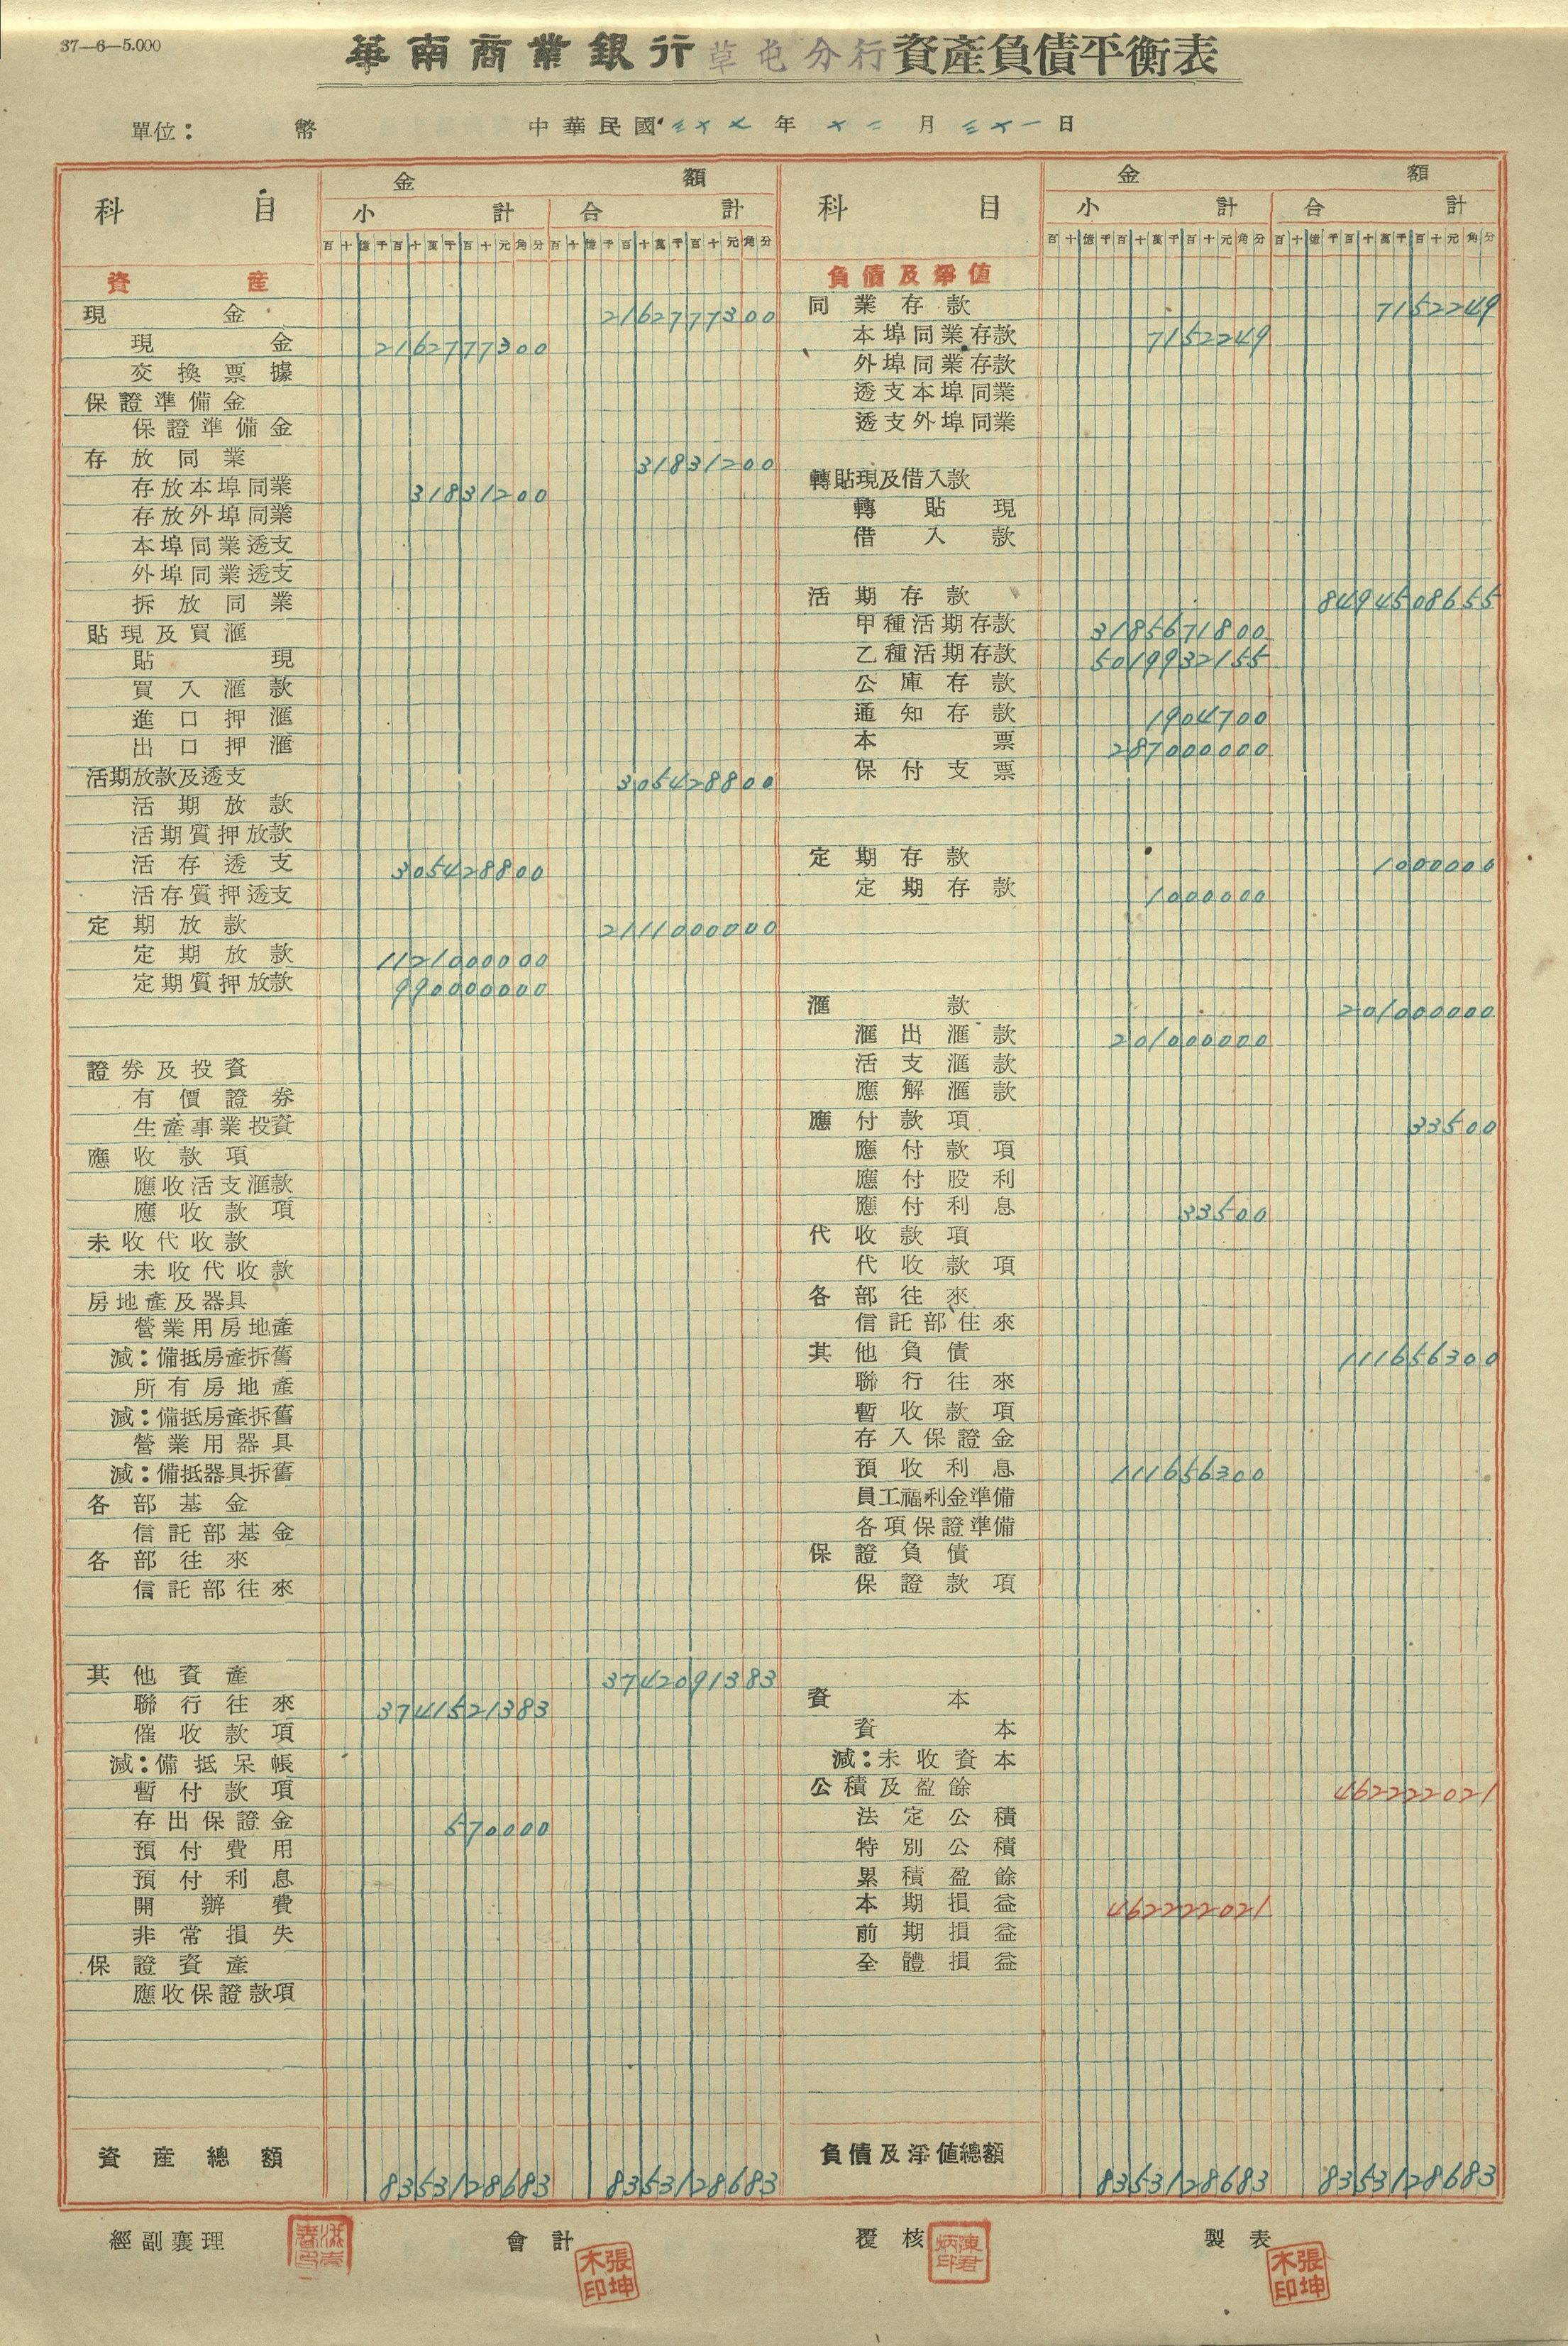 37—6—5.000
華南商業銀行草屯分行資產負債平衡表
單位: 幣 中華民國三十七年十二月三十一日
科目 金額
小計 合計
百十億千百十萬千百十元角分 百十億千百十萬千百十元角分
資產
現金 2162777300
現金 2162777300
交換票據
保證準備金
保證準備金
存放同業 31831200
存放本埠同業 31831200
存放外埠同業
本埠同業透支
外埠同業透支
拆放同業
貼現及買滙
貼現
買入滙款
進口押滙
出口押滙
活期放款及透支 305428800
活期放款
活期質押放款
活存透支 305428800
活存質押透支
定期放款 2111000000
定期放款 1121000000
定期質押放款 990000000
證券及投資
有價證券
生產事業投資
應收款項
應收活支滙款
應收款項
未收代收款
未收代收款
房地產及器具
營業用房地產
減:備抵房產拆舊
所有房地產
減:備抵房產拆舊
營業用器具
減:備抵器具拆舊
各部基金
信託部基金
各部往來
信託部往來
其他資產 3742091383
聯行往來 3741521383
催收款項
減:備抵呆帳
暫付款項
存出保證金 570000
預付費用
預付利息
開辦費
非常損失
保證資產
應收保證款項
資產總額 8353128683 8353128683
科目 金額
小計 合計
百十億千百十萬千百十元角分 百十億千百十萬千百十元角分
負債及淨值
同業存款 7152249
本埠同業存款 7152249
外埠同業存款
透支本埠同業
透支外埠同業
轉貼現及借入款
轉貼現
借入款
活期存款 8494508655
甲種活期存款 3185671800
乙種活期存款 5019932155
公庫存款
通知存款 1904700
本票 287000000
保付支票
定期存款 1000000
定期存款 1000000
滙款 201000000
滙出滙款 201000000
活支滙款
應解滙款
應付款項 33500
應付款項
應付股利
應付利息 33500
代收款項
代收款項
各部往來
信託部往來
其他負債 111656300
聯行往來
暫收款項
存入保證金
預收利息 111656300
員工福利金準備
各項保證準備
保證負債
保證款項
資本
資本
減:未收資本
公積及盈餘 462222021
法定公積
特別公積
累積盈餘
本期損益 462222021
前期損益
全體損益
負債及淨值總額 8353128683 8353128683
經副襄理 會計 張坤木印 覆核 陳君炳印 製表 張坤木印